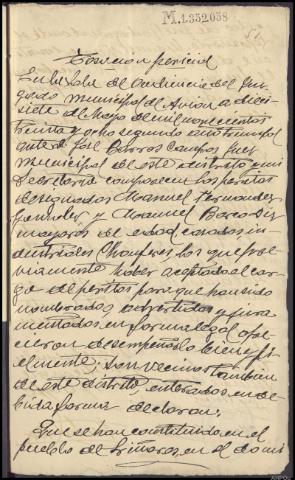 M.1.352.058
Tasacion pericial
En la Sala de Audiencia del Juz-
gado Municipal de Avion a dieci-
siete de Mayo de mil novecientos
treinta y ocho segundo año triunfal
ante D. José Barros Campos Juez
Municipal de este distrito y mi
Secretario comparecen los peritos
designados Manuel Fernandez
y Manuel
mayores de edad casados in-
dustriales Chouferes los que pre-
viamente haber aceptado el car-
go de peritos para que han sido
nombrados y advertidos y jura-
mentados en forma legal ofre-
cieron desempeñarlo bien y fi-
elmente, son vecinos tambien
de este distrito, enterados en de-
bida forma declaran:
Que se han constituido en el
pueblo de en el domi